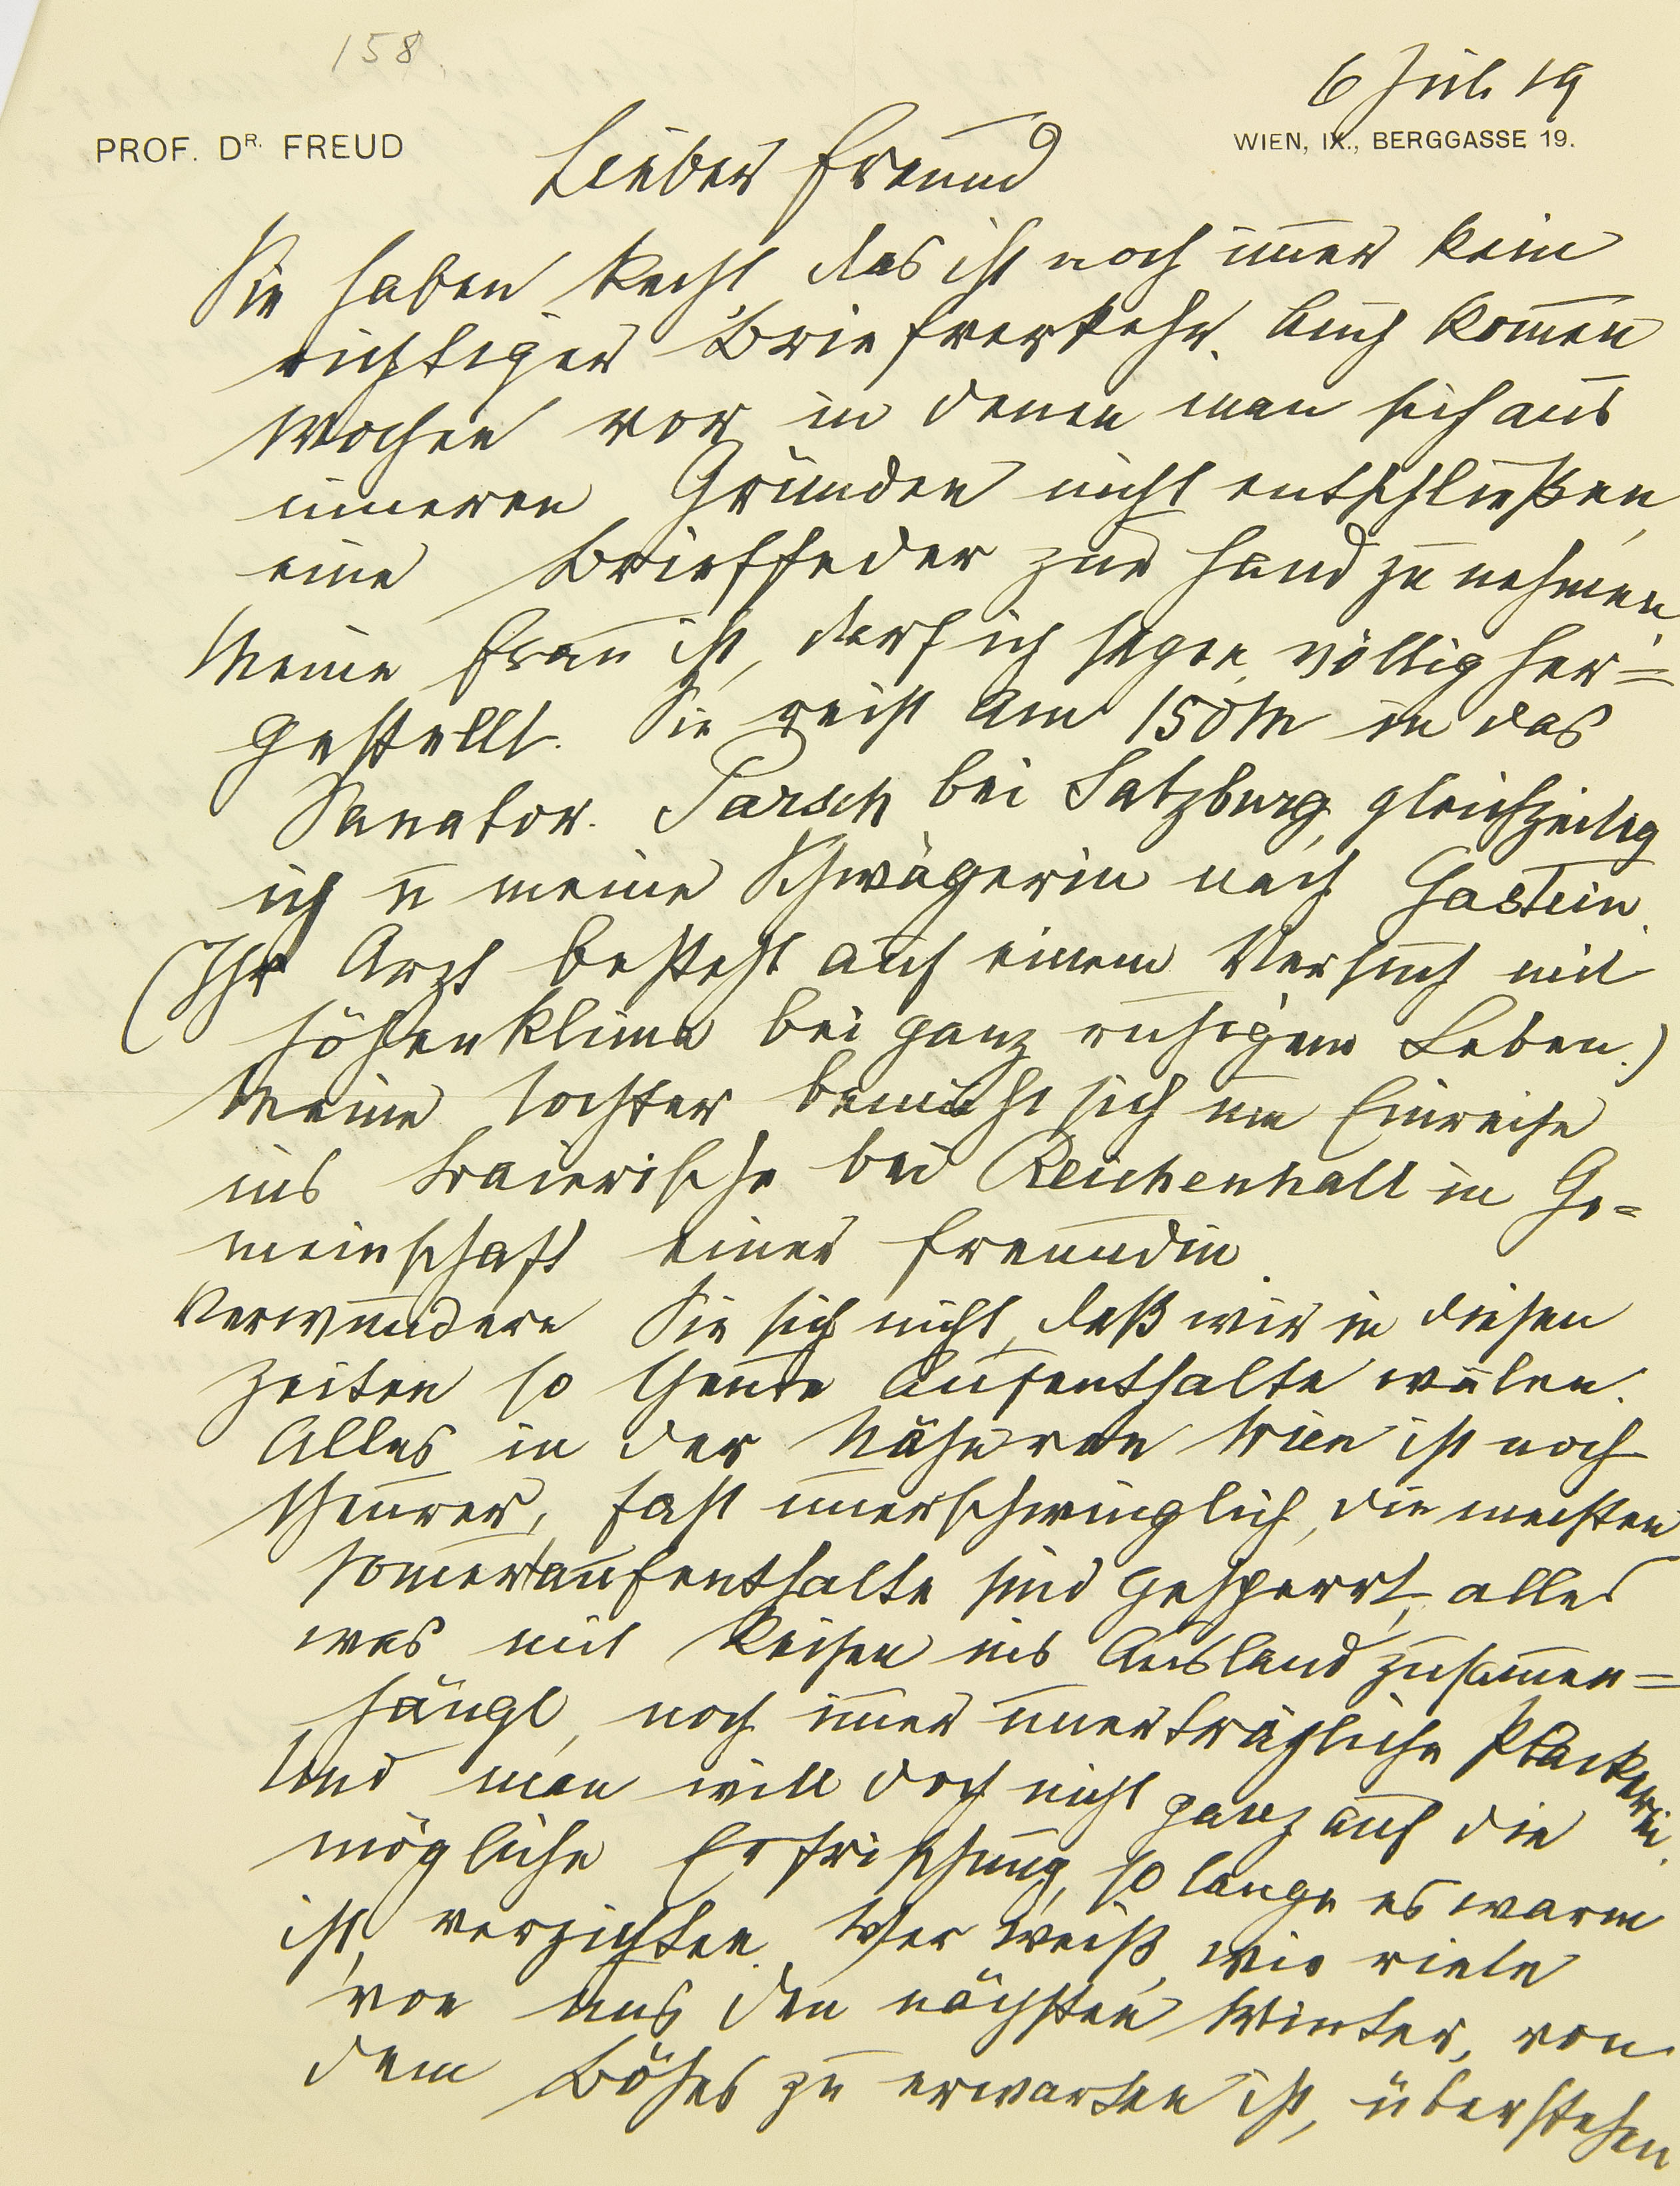 158.
6 Juli 19
PROF. DR. FREUD
WIEN, IX., BERGGASSE 19.
Lieber Freund
Sie haben Recht, das ist noch im̅er kein
richtiger Briefverkehr. Auch kom̅en
Wochen vor, in denen man sich aus
inneren Gründen nicht entschließen,
eine Brieffeder zur Hand zu nehmen.
Meine Frau ist, darf ich sagen, völlig her=
gestellt. Sie reist am 15 d M in das
Sanator. Parsch bei Salzburg, gleichzeitig
ich u meine Schwägerin nach Gastein.
(Ihr Arzt besteht auf einem Versuch mit
Höhenklima bei ganz ruhigem Leben.)
Meine Tochter bemüht sich um Einreise
ins Baierische bei Reichenhall in Ge=
meinschaft einer Freundin.
Verwundern Sie sich nicht, daß wir in diesen
Zeiten so theure Aufenthalte wälen.
Alles in der Nähe von Wien ist noch
theurer, fast unerschwinglich, die meisten
Som̅eraufenthalte sind gesperrt, alles
was mit Reisen ins Ausland zusam̅en=
hängt, noch im̅er unerträgliche Plackerei.
Und man will doch nicht ganz auf die
mögliche Erfrischung, so lange es warm
ist, verzichten. Wer weiß, wie viele
von uns den nächsten Winter, von
dem Böses zu erwarten ist, überstehen